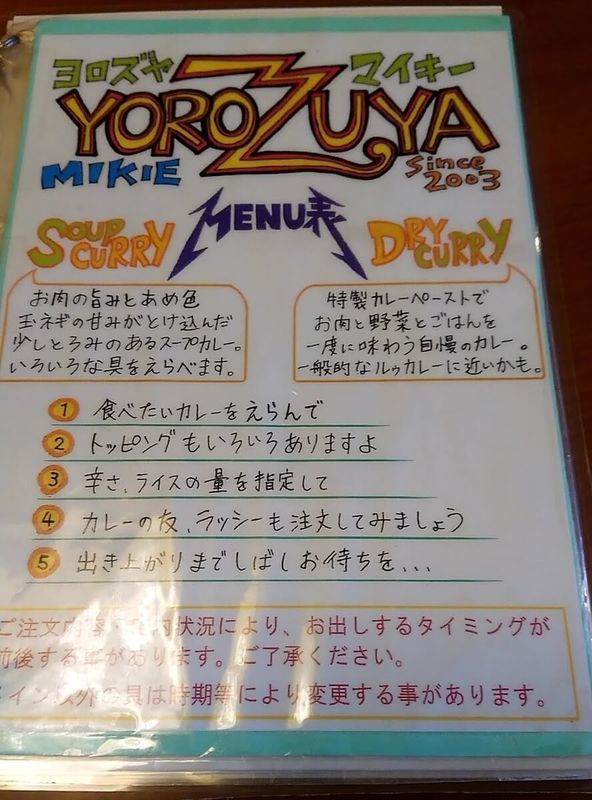 ヨロズヤ マイキー
YOROZUYA
MIKIE
Since
2003
SOUP
CURRY
MENU表
DRY
CURRY
お肉の旨みとあめ色
玉ネギの甘みがとけ込んだ
少しとろみのあるスープカレー。
いろいろな具をえらべます。
特製カレーペーストで
お肉と野菜とごはんを
一度に味わう自慢のカレー。
一般的なルゥカレーに近いかも。
1 食べたいカレーをえらんで
2 トッピングもいろいろありますよ
3 辛さ、ライスの量を指定して
4 カレーの友、ラッシーも注文してみましょう
5 出き上がりまでしばしお待ちを...
ご注文内容 内状況により、お出しするタイミングが
前後する事があります。ご了承ください。
メイン以外の具は時期等により変更する事があります。